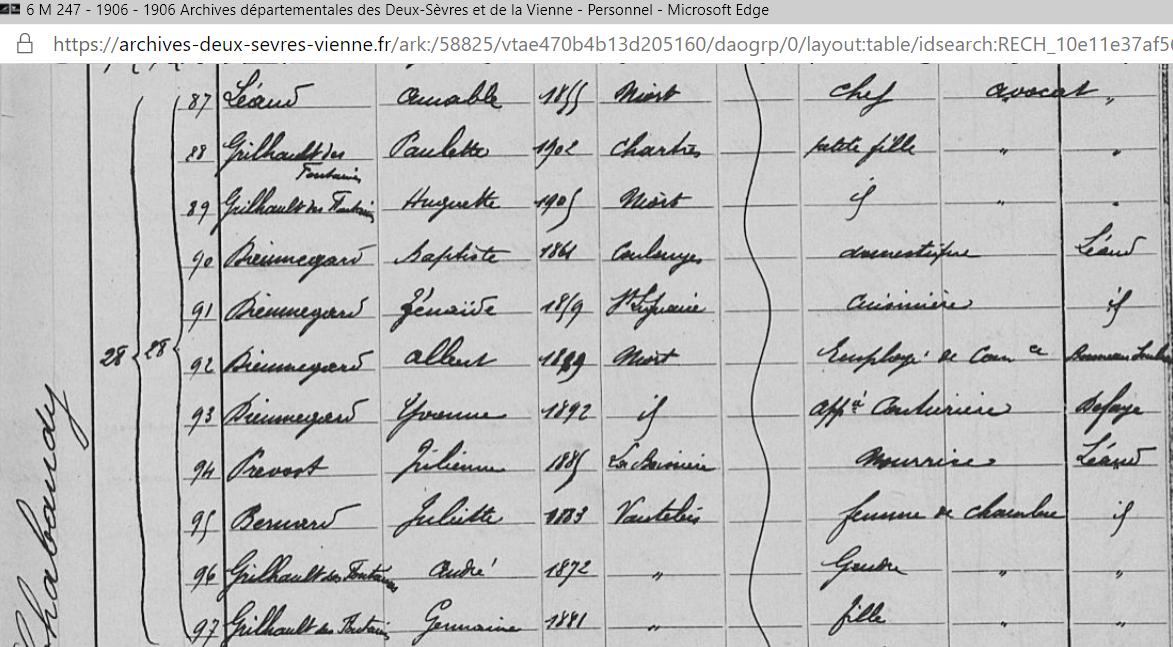 6 M 247 - 1906 - 1906 Archives départementales des Deux-Sèvres et de la Vienne - Personnel - Microsoft Edge
https://archives-deux-sevres-vienne.fr/ark:/58825/vtae470b4b13d205160/daogrp/0/layout:table/idsearch:RECH_10e11e37af56
87 Léaud Amable 1855 Niort chef avocat "
88 Grilhault des Fontaines Paulette 1902 Chartres petite fille " "
89 Grilhault des Fontaines Huguette 1905 Niort id " "
90 Bienvenard Baptiste 1861 Coulonges domestique Léaud
91 Zénaïde 1859 St Liguaire Cuisinière id
28 28 92 albert 1889 Niort Employé de Comce
93 Yvonne 1892 id appé Couturière Defaye
94 Prevost Julienne 1885 nourrice Léaud
95 Bernard Juliette 1883 Vautebis femme de chambre id
96 Grilhault des Fontaines André 1872 " Gendre " "
97 Grilhault des Fontaines Germaine 1881 " fille " "
Chabaudy